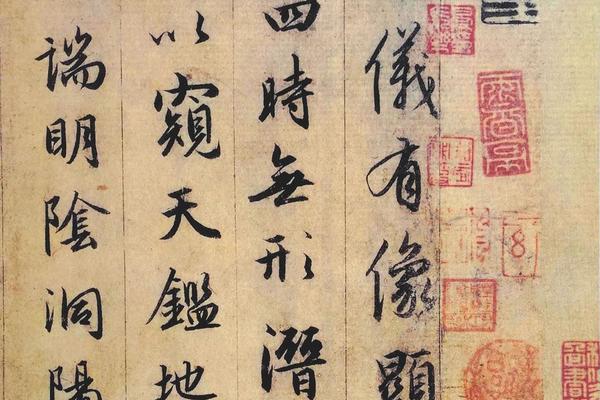 儀有像顯
四時無形潛
以窺天鑑地
端明陰洞陽